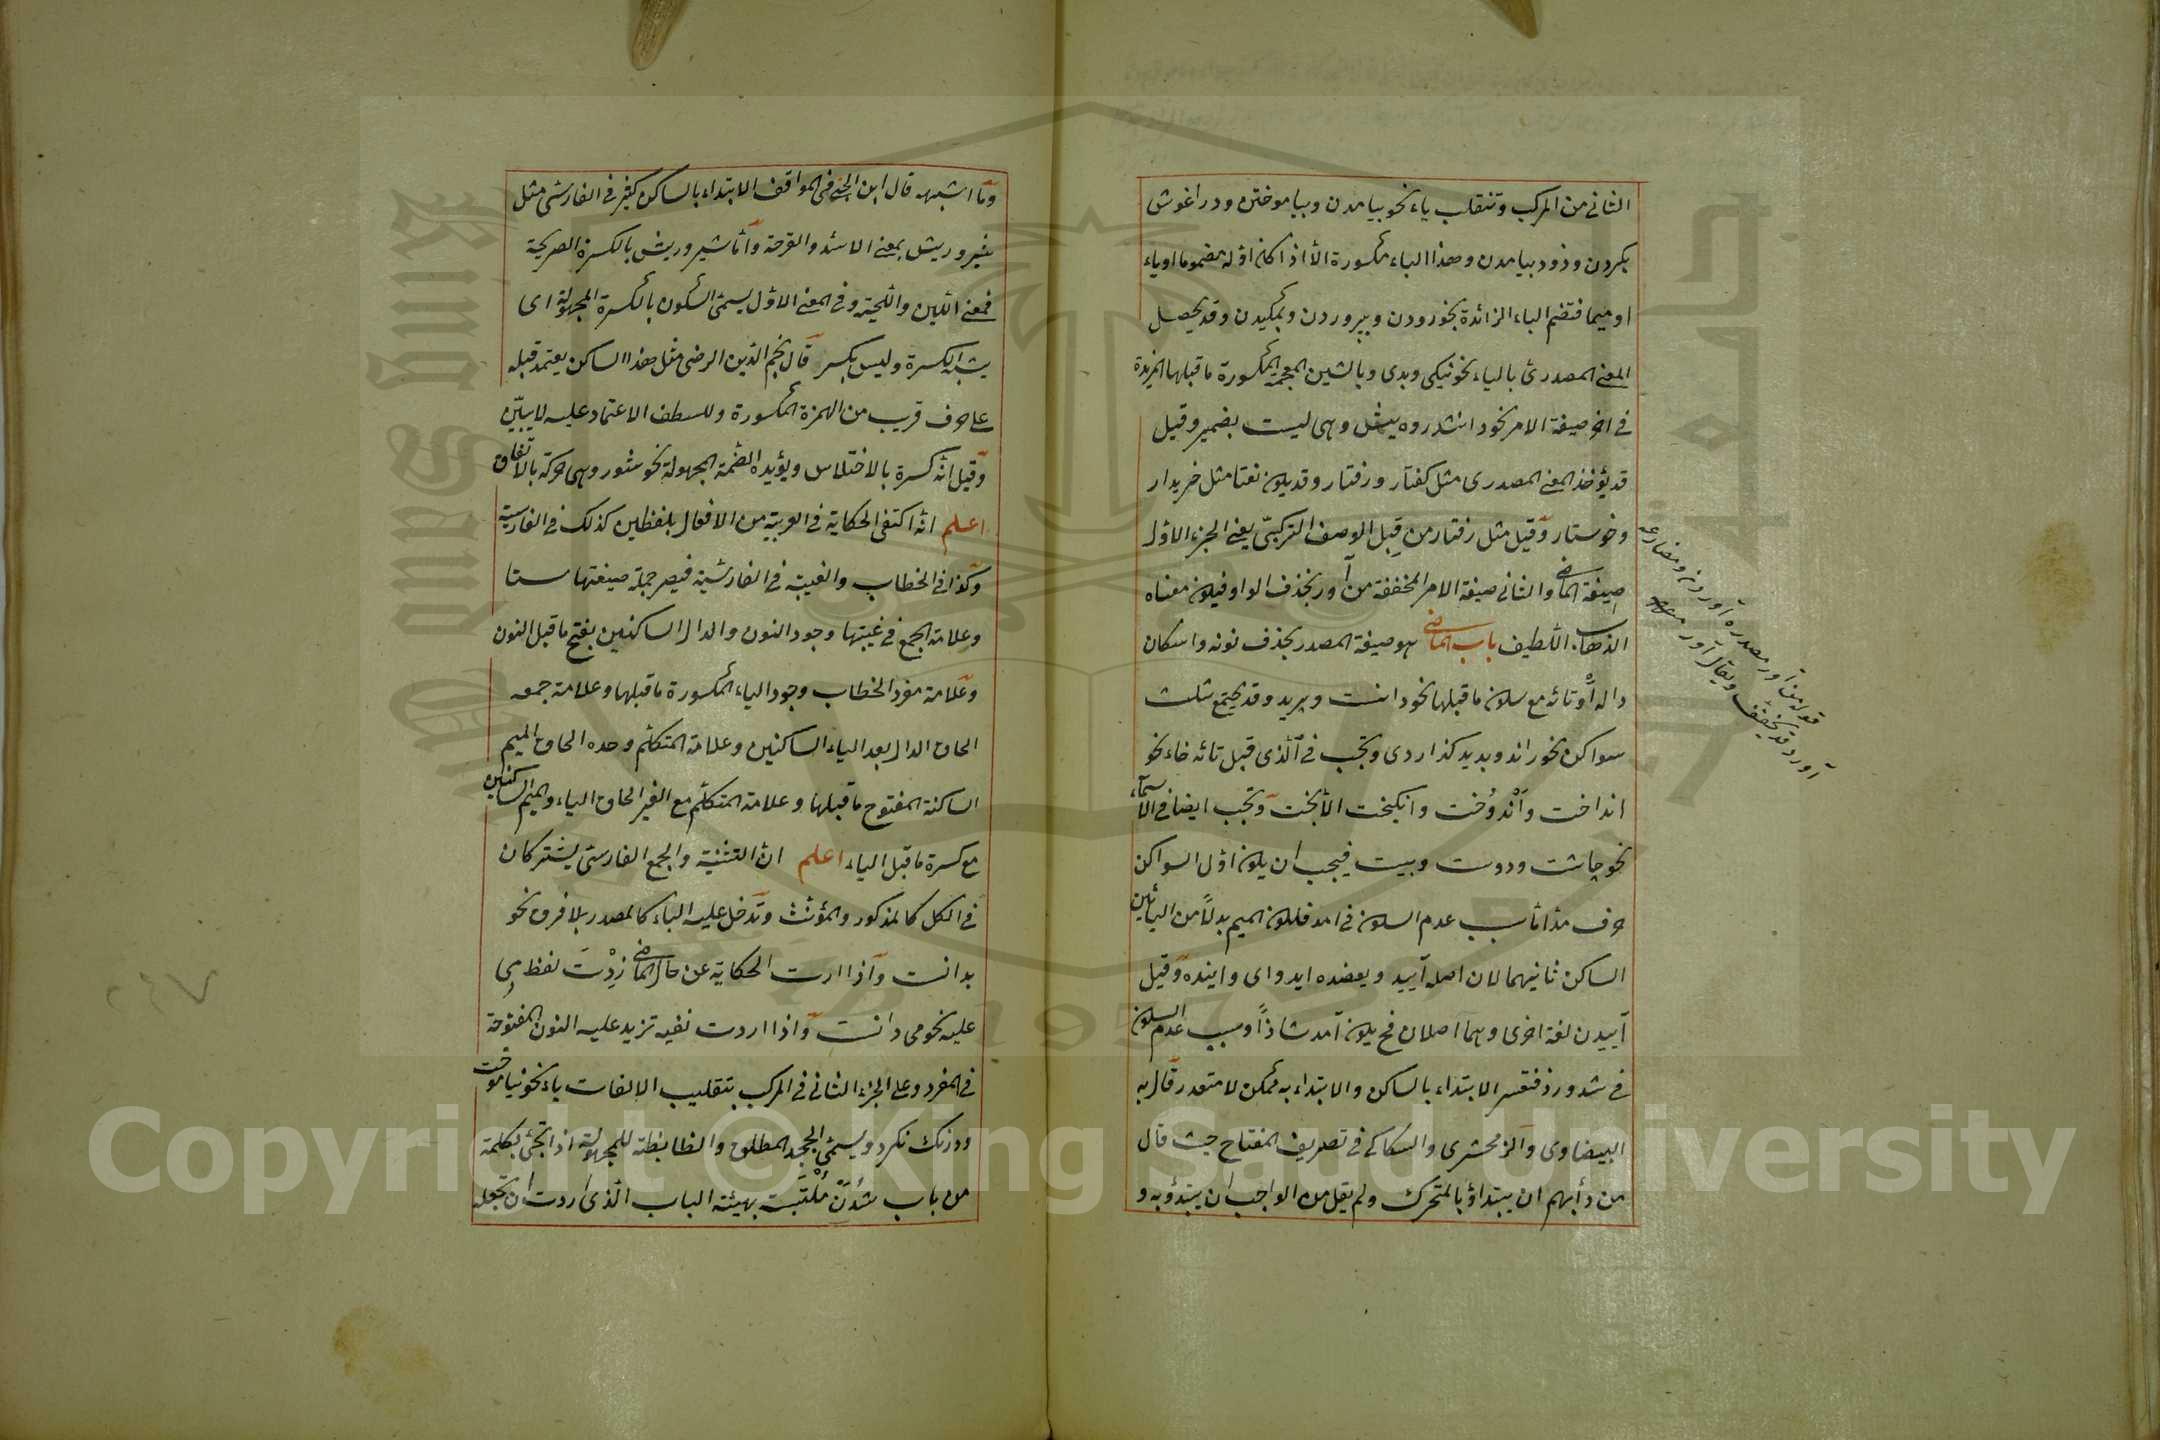 الثانى من المركب وتنقلب ياء نحو بيامدن وبياموختن ودر اغوش
بكردن وزود بيامدن وهذا الباء مكسورة الا اذا كان اوله مضموما او ياء
او ميما فتضم الباء الزائدة نحو زودن وبپروردن وبمكيدن وقد يحصل
المعنى المصدرى بالياء نحو نيكى وبدى وبالشين المعجمة المكسورة ما قبلها المزيدة
فى اخر صيغة الامر نحو دانش وروش وبينش وهى ليست بضمير وقيل
قد يؤخذ المعنى المصدرى مثل كفتار ورفتار وقد يكون نعتا مثل خريدار
وخوستار وقيل مثل رفتار من قبل الوصف التركيبى يعنى الجزء الاول
صيغة الماضى والثانى صيغة الامر المخففة من آور بحذف الواو فيكون معناه
الذهاب اللطيف باب الماضى هو صيغة المصدر بحذف نونه واسكان
داله او تائه مع سكون ما قبلها نحو دانست وپريد وقد يجتمع ثلث
سواكن نحو راند وبديد كذاردى وتجب فى الذى قبل تائه خاء نحو
انداخت واندوخت وانكيخت الا بخت وتجب ايضا فى الاسماء
نحو چاشت ودوست وبيست فيجب ان يكون اول السواكن
حرف مد اما سبب عدم السكون فى امد فلكون الميم بدلا من اليائين
الساكن ثانيهما لان اصله آييد ويعضده ايد واى واينده وقيل
آييدن لغة اخرى وهما اصلان فح يكون آمد شاذا وسبب عدم السكون
فى شد وزد فتعسر الابتداء بالساكن والابتداء به ممكن لا متعذر قال به
البيضاوى والزمحشرى والسكاكى فى تصريف المفتاح حيث قال
من دأبهم ان يبتداؤ بالمتحرك ولم يقل من الواجب ان يبتدؤ به و
قوله من آور مصدره آوردن ومضارعه
آورد قد يخفف ويقال آور
وما اشبهه قال ابن الجنى فى المواقف الابتداء بالساكن كثير فى الفارسى مثل
شير وريش بمعنى الاسد والقرحة واما شير وريش بالكسرة الصريحة
فمعنى اللبن واللحية وفى المعنى الاول يسمى السكون بالكسرة المجهولة اى
يشبه الكسرة وليس بكسر قال نجم الدين الرضى مثل هذا الساكن يعتمد قبله
على حرف قريب من الهمزة المكسورة وللطف الاعتماد عليه لا يبين
وقيل انه كسرة بالاختلاس ويؤيده الضمة المجهولة نحو شور وهى حركة بالاتفاق
اعلم انه اكتفى الحكاية فى العربية من الافعال بلفظين كذلك فى الفارسية
وكذا فى الخطاب والغيبة فى الفارسية فيصير جملة صيغتها ستا
وعلامة الجمع فى غيبتها وجود النون والدال الساكنين بفتح ما قبل النون
وعلامة مفرد الخطاب وجود الياء المكسورة ما قبلها وعلامة جمعه
الحاق الدال بعد الياء الساكنين وعلامة المتكلم وحده الحاق الميم
الساكنة المفتوح ما قبلها وعلامة المتكلم مع الغير الحاق الياء والميم الساكنين
مع كسرة ما قبل الياء اعلم ان التثنية والجمع الفارسى يشتركان
فى الكل كالمذكور والمؤنث وتدخل عليه الباء كالمصدر بلا فرق نحو
بدانست واذا اردت الحكاية عن حال الماضى زدت لفظ مى
عليه نحو مى دانست واذا اردت نفيه تزيد عليه النون المفتوحة
فى المفرد وعلى الجزء الثانى فى المركب بتقليب الالفات ياء نحو نياموخت
ودرنك نكرد ويسمى الجحد المطلق والضابطة للمجهولة اذا تجئ بكلمة
من باب شدن ملتبسة بهيئة الباب الذى اردت ان تجعله
٢٤٧
Copyright © King Saud University
1957